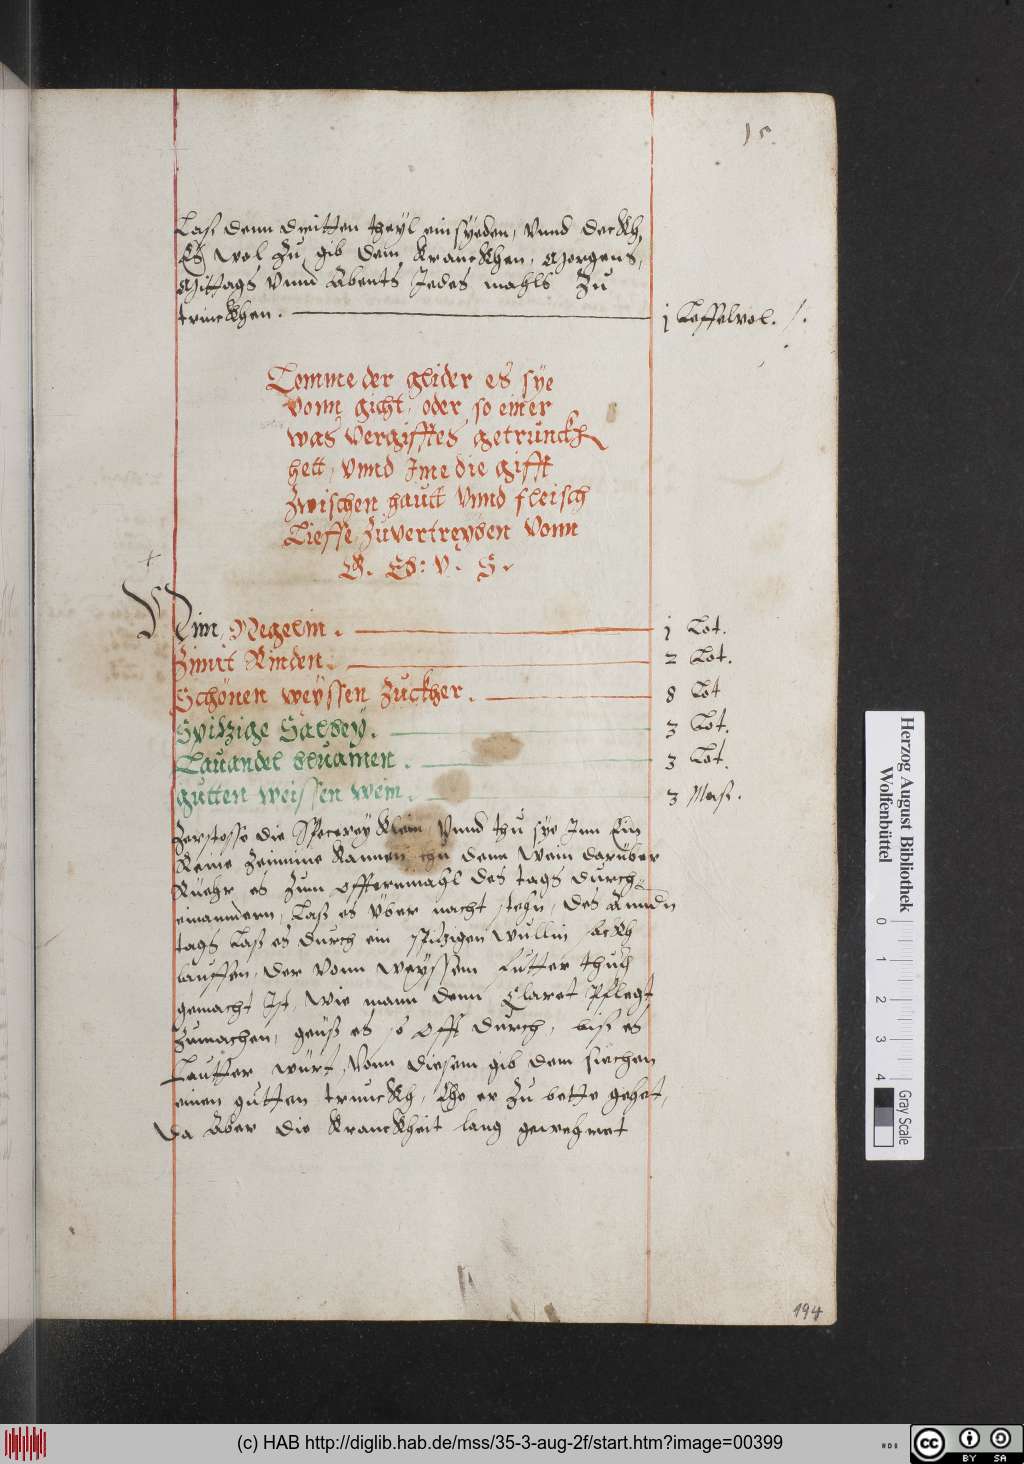 15.
Laß denn dritten theyl einsyeden, Vnnd deckh
Es wol zu, gib dem Kranckhen, Morgens,
Mittags Vnnd Abents Jedes mahls zu
trinckhen. 1 Leffelvol.
Lemme der glider es sye
Vonn gicht, oder so einer
was Vergifftes getrunckh
hett, Vnnd Ime die gifft
Zwischen hautt Vnnd fleisch
Lieffe, Zuvertreyben Vonn
G. Eb: V. S.
Nim, Negelin. 1 Lot.
Zimit Rinden. 2 Lot.
Schönen weyssen Zuckher. 8 Lot
Spitzige Salbey. 3 Lot.
Lauandel bluamen. 3 Lot.
gutten weissen wein. 3 Maß.
Zerstosse die Specerey klein Vnnd thu sye Inn Ein
Reine Zeinnine Kannen, thu denn Wein darüber
Rüehr es Zum offternmahl des tags durch
einanndern, Laß es über nacht stehn, des Anndn
tags Laß es durch ein spitzigen Wullin sackh
lauffen, der Vonn Weyssem Lutter thuch
gemacht Ist, Wie mann denn Claret Pflegt
Zumachen, geuß es so offt durch, biß es
Lautter würt, Vonn diesem gib dem siechen
einen gutten trunckh, Ehe er Zu bette gehet,
Da Aber die Kranckheit lang gewehret
194
Herzog August Bibliothek
Wolfenbüttel
0 1 2 3 4
Gray Scale
(c) HAB http://diglib.hab.de/mss/35-3-aug-2f/start.htm?image=00399
cc BY SA